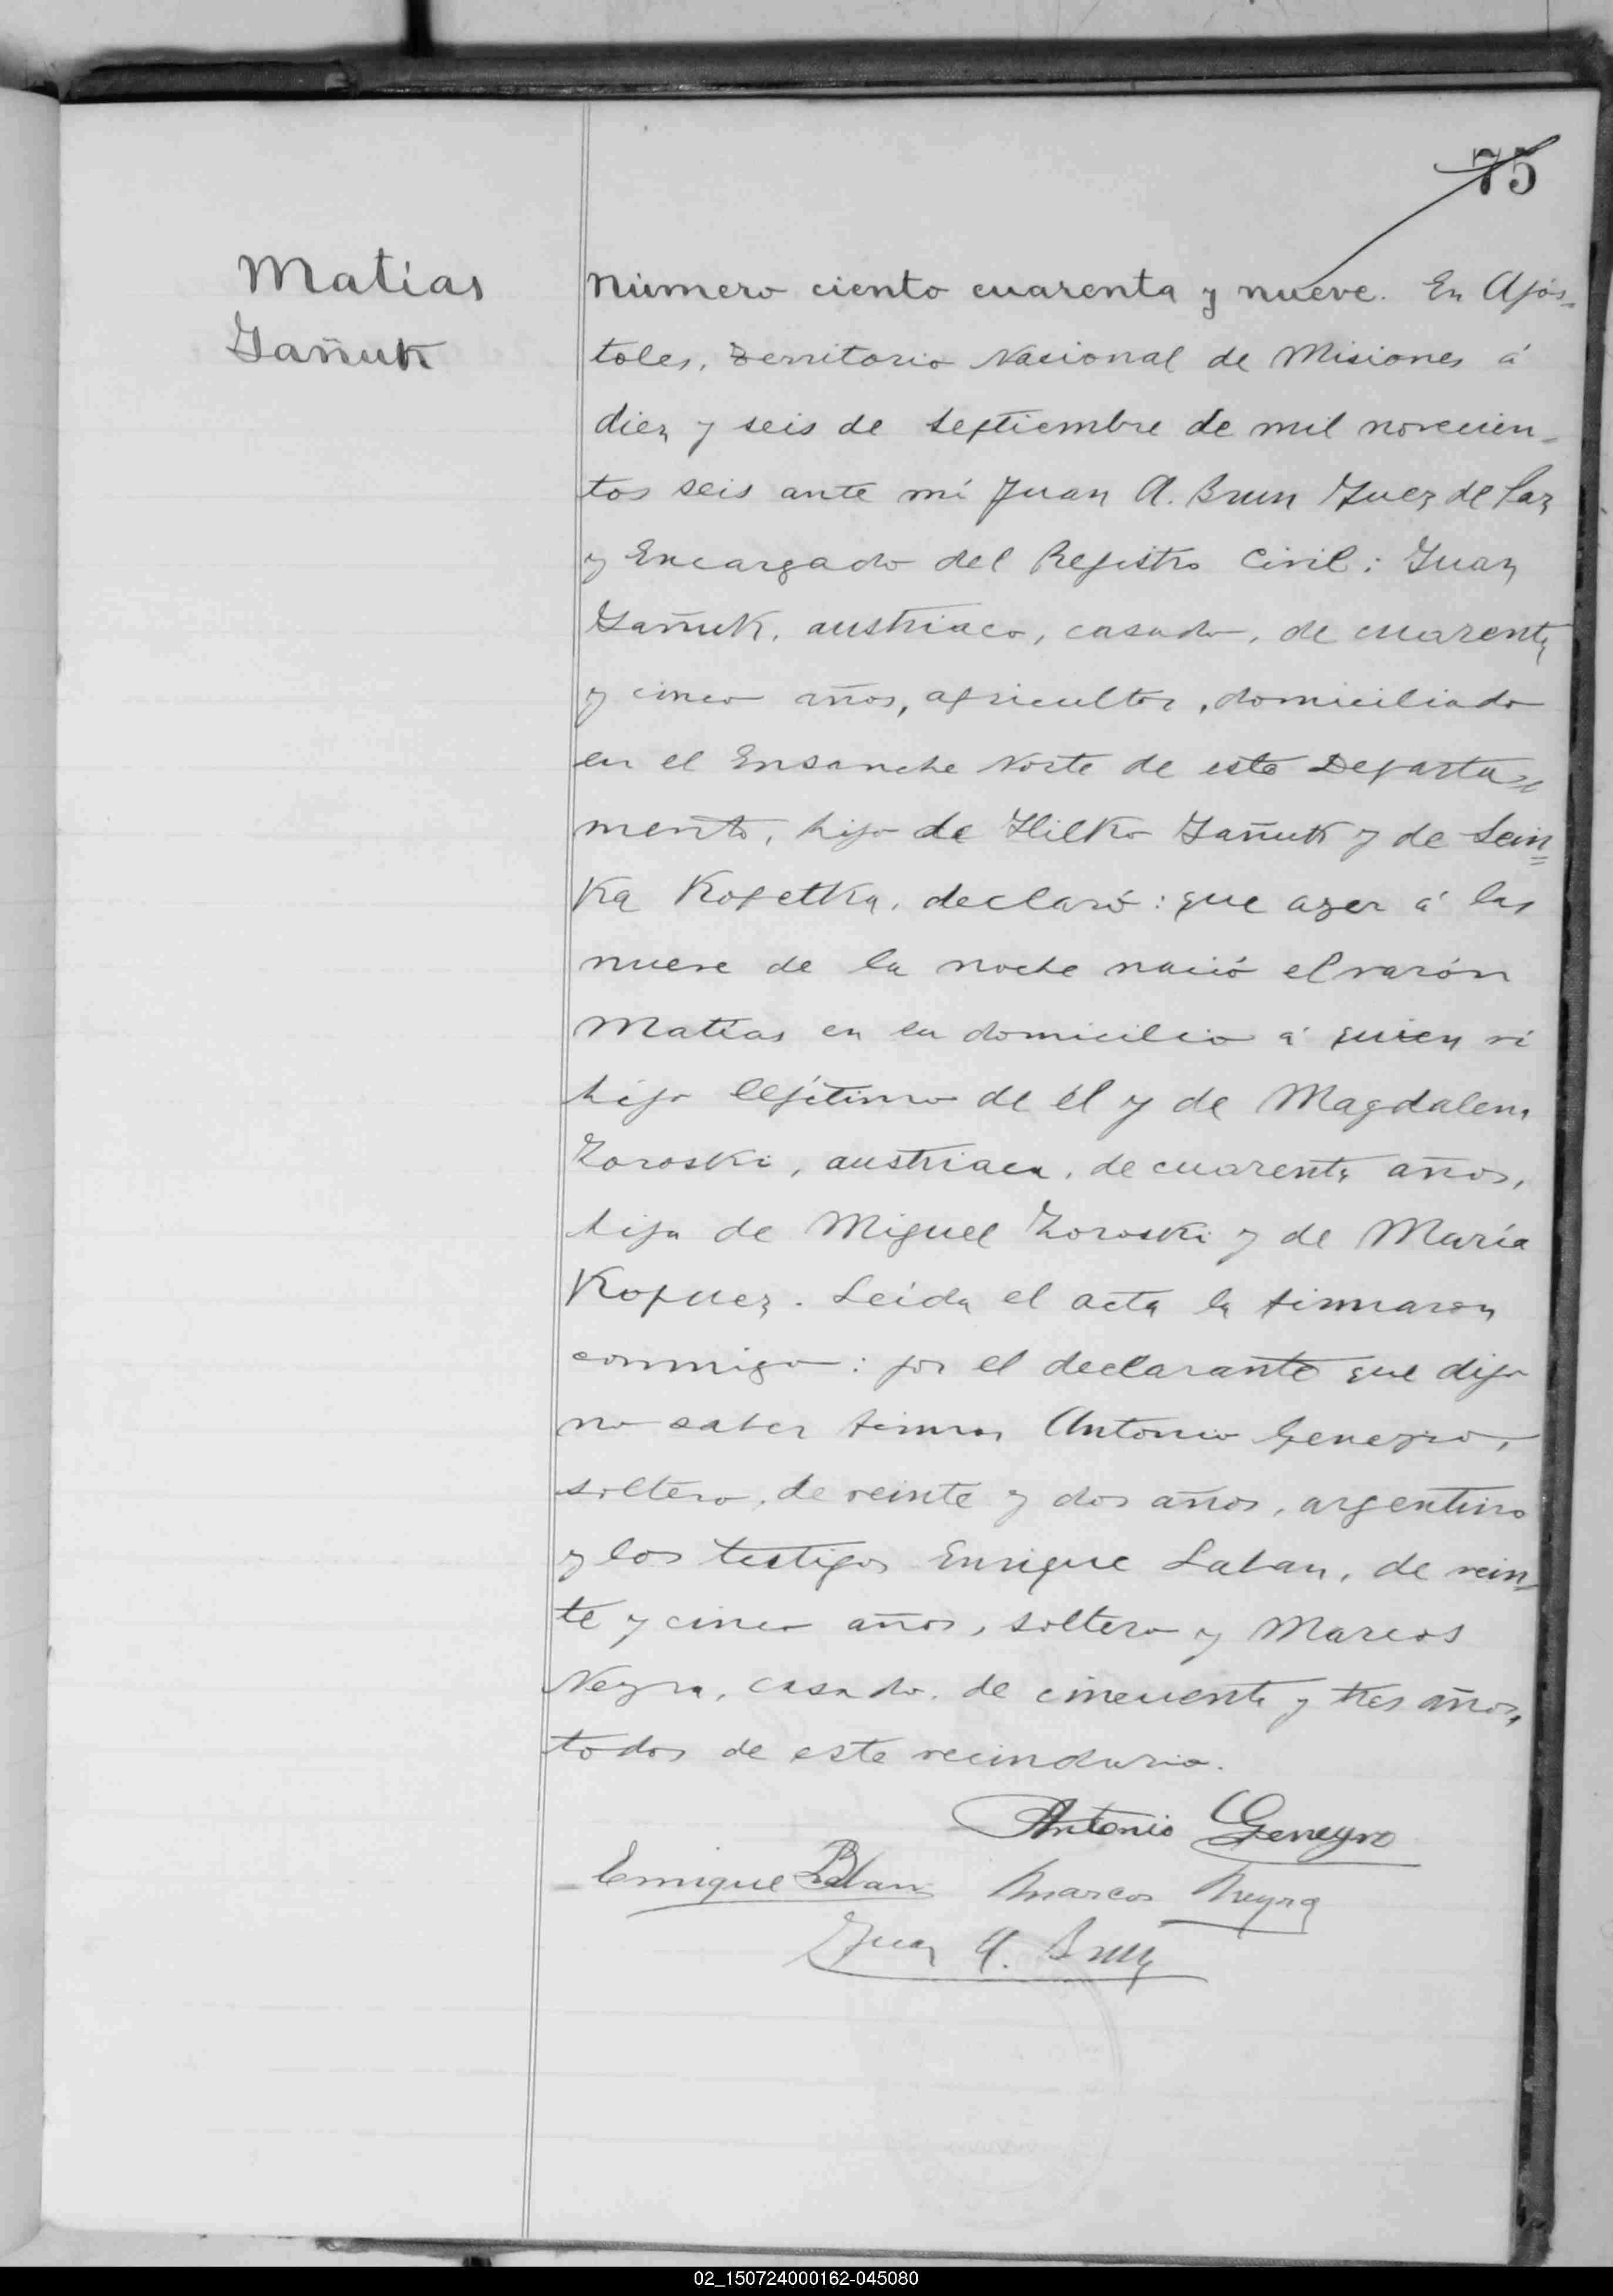 75
Matías
Yañuk
Número ciento cuarenta y nueve. En Após-
toles, Territorio Nacional de Misiones á
diez y seis de Septiembre de mil novecien-
tos seis ante mí Juan A. Brun Juez de Paz
y Encargado del Registro Civil: Juan
Yañuk, austriaco, casado, de cuarenta
y cinco años, agricultor, domiciliado
en el Ensanche Norte de este Departa-
mento, hijo de Hilko Yañuk y de Sein=
ka Kopetka, declaró: que ayer á las
nueve de la noche nació el varón
Matías en su domicilio á quien ví
hijo legítimo de él y de Magdalena
Zoroski, austriaca, de cuarenta años,
hija de Miguel Zoroski y de María
Kopuez. Leída el acta la firmaron
conmigo: por el declarante que dijo
no saber firmar Antonio Geneyro,
soltero, de veinte y dos años, argentino
y los testigos Enrique Laban, de vein-
te y cinco años, soltero y Marcos
Neyra, casado, de cincuenta y tres años,
todos de este vecindario.
Antonio Geneyro
Enrique Marcos Neyra
Juan A. Brun
02_150724000162-045080